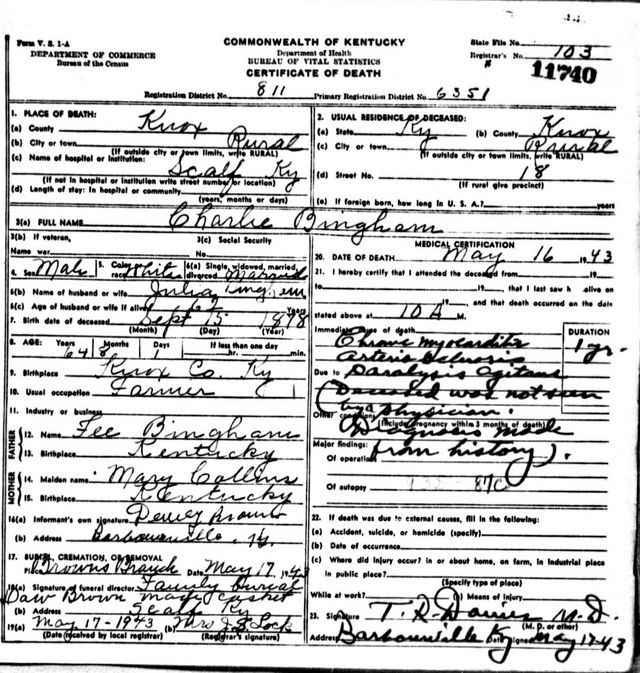 Form V. S. 1-A
DEPARTMENT OF COMMERCE
Bureau of the Census
COMMONWEALTH OF KENTUCKY
Department of Health
BUREAU OF VITAL STATISTICS
CERTIFICATE OF DEATH
State File No.
Registrar's No. 103
# 11740
Registration District No. 811 Primary Registration District No. 6351
1. PLACE OF DEATH:
(a) County Knox
(b) City or town Rural
(If outside city or town limits, write RURAL)
(c) Name of hospital or institution: Scalf Ky
(If not in hospital or institution write street number or location)
(d) Length of stay: In hospital or community
(years, months or days)
2. USUAL RESIDENCE OF DECEASED:
(a) State Ky (b) County Knox
(c) City or town Rural
(If outside city or town limits, write RURAL)
(d) Street No. 18
(If rural give precinct)
(e) If foreign born, how long in U. S. A.? years
3(a) FULL NAME Charlie Bingham
3(b) If veteran, 3(c) Social Security
Name war No.
4. Sex Male 5. Color or race White 6(a) Single, widowed, married, divorced Married
6(b) Name of husband or wife Julia Bingham
6(c) Age of husband or wife if alive 62 Years
7. Birth date of deceased Sept 15 1878
(Month) (Day) (Year)
8. AGE: Years Months Days If less than one day
64 8 1 hr. min.
9. Birthplace Knox Co. Ky
10. Usual occupation Farmer
11. Industry or business
FATHER
12. Name Fee Bingham
13. Birthplace Kentucky
MOTHER
14. Maiden name Mary Collins
15. Birthplace Kentucky
16(a) Informant's own signature Dewey Brown
(b) Address Barbourville, Ky.
17. BURIAL, CREMATION, OR REMOVAL
Place Browns Branch Date May 17, 1943
18(a) Signature of funeral director Family burial
Daw Brown made casket
(b) Address Scalf Ky
19(a) May 17-1943 (b) Mrs J. S. Lock
(Date received by local registrar) (Registrar's signature)
MEDICAL CERTIFICATION
20. DATE OF DEATH May 16 1943
21. I hereby certify that I attended the deceased from
19 , to 19 , that I last saw h alive on
19 , and that death occurred on the date
stated above at 10 A M.
Immediate cause of death
Chronic myocarditis
Arterio Sclerosis
Due to Paralysis agitans
DURATION
1 yr.
(Deceased was not seen
Other conditions by a physician.
(Include pregnancy within 3 months of death)
Diagnosis made
Major findings: from history).
Of operation
Of autopsy 87C
22. If death was due to external causes, fill in the following:
(a) Accident, suicide, or homicide (specify)
(b) Date of occurrence
(c) Where did injury occur? in or about home, on farm, in industrial place
in public place?
(Specify type of place)
While at work? (e) Means of injury
23. Signature T. R. Davies M.D.
(M. D. or other)
Address Barbourville Ky Date signed May 17 43